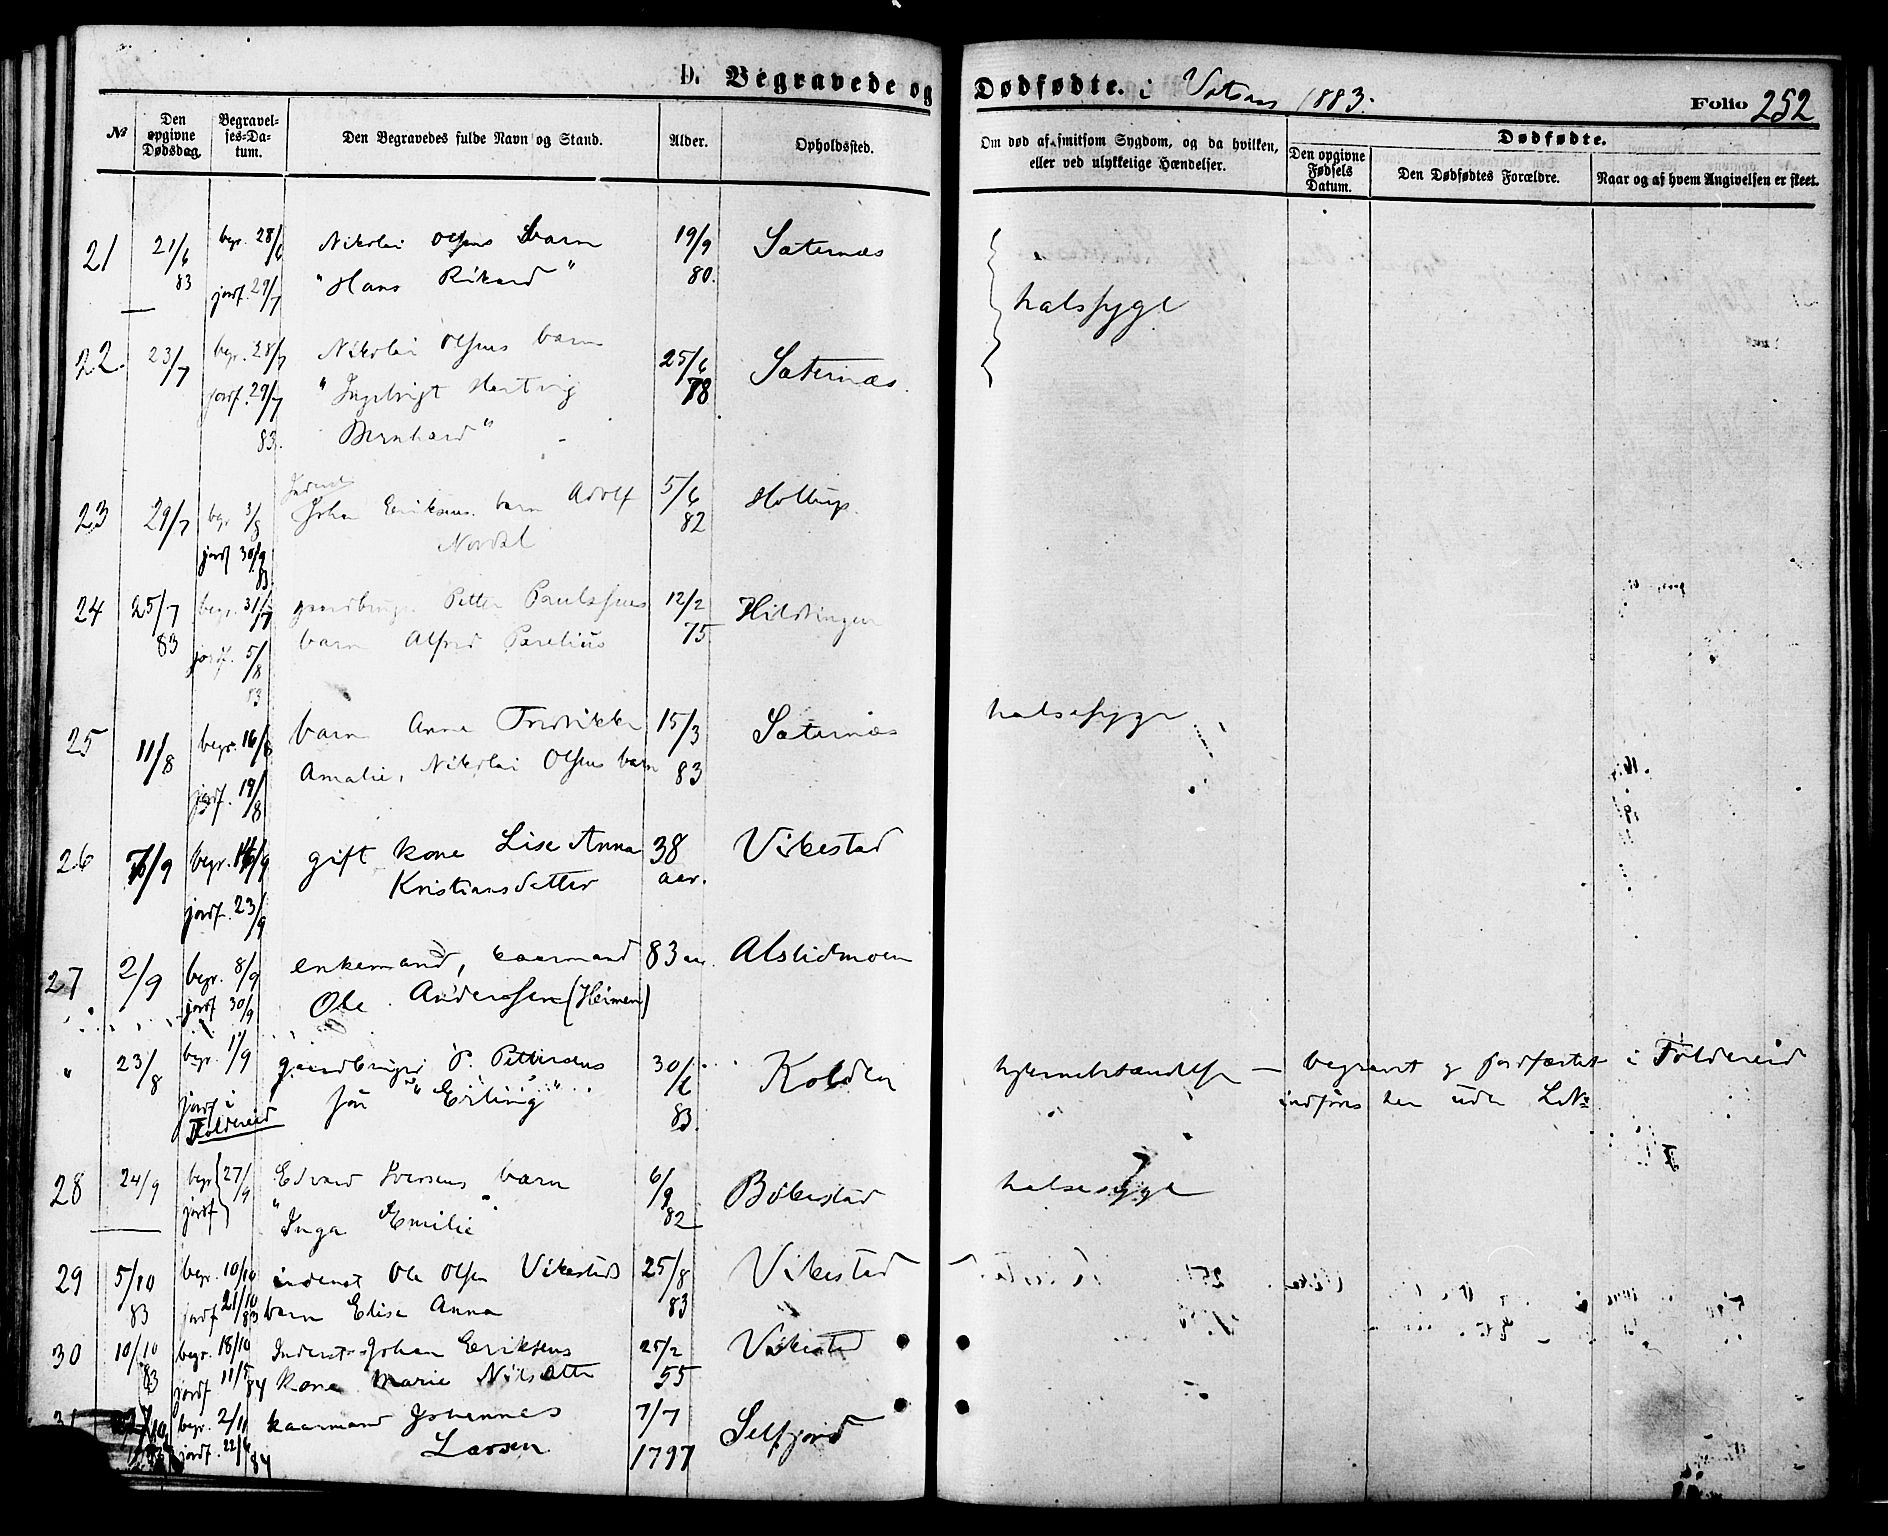 D. Begravede og Dødfødte. i Vatnes 1883.
Folio 252
№
Den opgivne Dødsdag.
Begravelses-Datum.
Den Begravedes fulde Navn og Stand.
Alder.
Opholdssted.
Om død af smitsom Sygdom, og da hvilken, eller ved ulykkelige Hændelser.
Dødfødte.
Den opgivne Fødsels Datum.
Den Dødfødtes Forældre.
Naar og af hvem Angivelsen er skeet.
21 21/6 83 begr. 28/6 Nikolai Olsens barn 19/9 Sæternæs
jordf. 29/7 "Hans Rikard" 80. halssyge
22. 23/7 begr. 28/7 Nikolai Olsens barn 25/6 Sæternæs.
jordf. 29/7 "Ingebrigt Hartvig 78
83. Bernhard"
23 29/7 begr. 3/8 Inderst Johan Eriksens barn Adolf 5/6 Hottup.
jordf 30/9 83 Nordal 82
24 25/7 begr. 31/7 gaardbruger Petter Paulssens 12/2 Hildringen
83 jordf. 5/8 83 barn Alfred Parelius 75
25 11/8 begr. 16/8 barn Anna Fredrikke 15/3 Sæternæs halsesyge
jordf. 19/8 Amalie, Nikolai Olsens barn 83
26 7/9 begr. 14/9 gift kone Lise Anna 38 Vikestad
jordf. 23/9 Kristiansdatter aar.
27 2/9 begr. 8/9 enkemand, kaarmand 83 aar Alslidmoen
jordf 30/9 Ole Anderssen (Heimen)
" 23/8 begr. 1/9 gaardbruger P. Pettersens 30/6 Kolden hjernebetændelse — begravet og jordfæstet i Foldereid
jordf i Foldereid søn "Erling" 83. indføres her uden L№
28 24/9 begr jordf 27/9 Edvard Iversens barn 6/9 Bökestad halsesyge
"Inga Emilie" 82
29 5/10 begr. 10/10 inderst Ole Olsen Vikestads 25/8 Vikestad
83 jordf 21/10 83 barn Elise Anna 83
30 10/10 begr. 18/10 Inderst Johan Eriksens 25/2 Vikestad
83 jordf 11/5 84 kone Marie Nilsdtter 55
31 begr. 2/11 kaarmand Johannes 7/7 Selfjord
jordf. 22/6 84 Larsen 1797